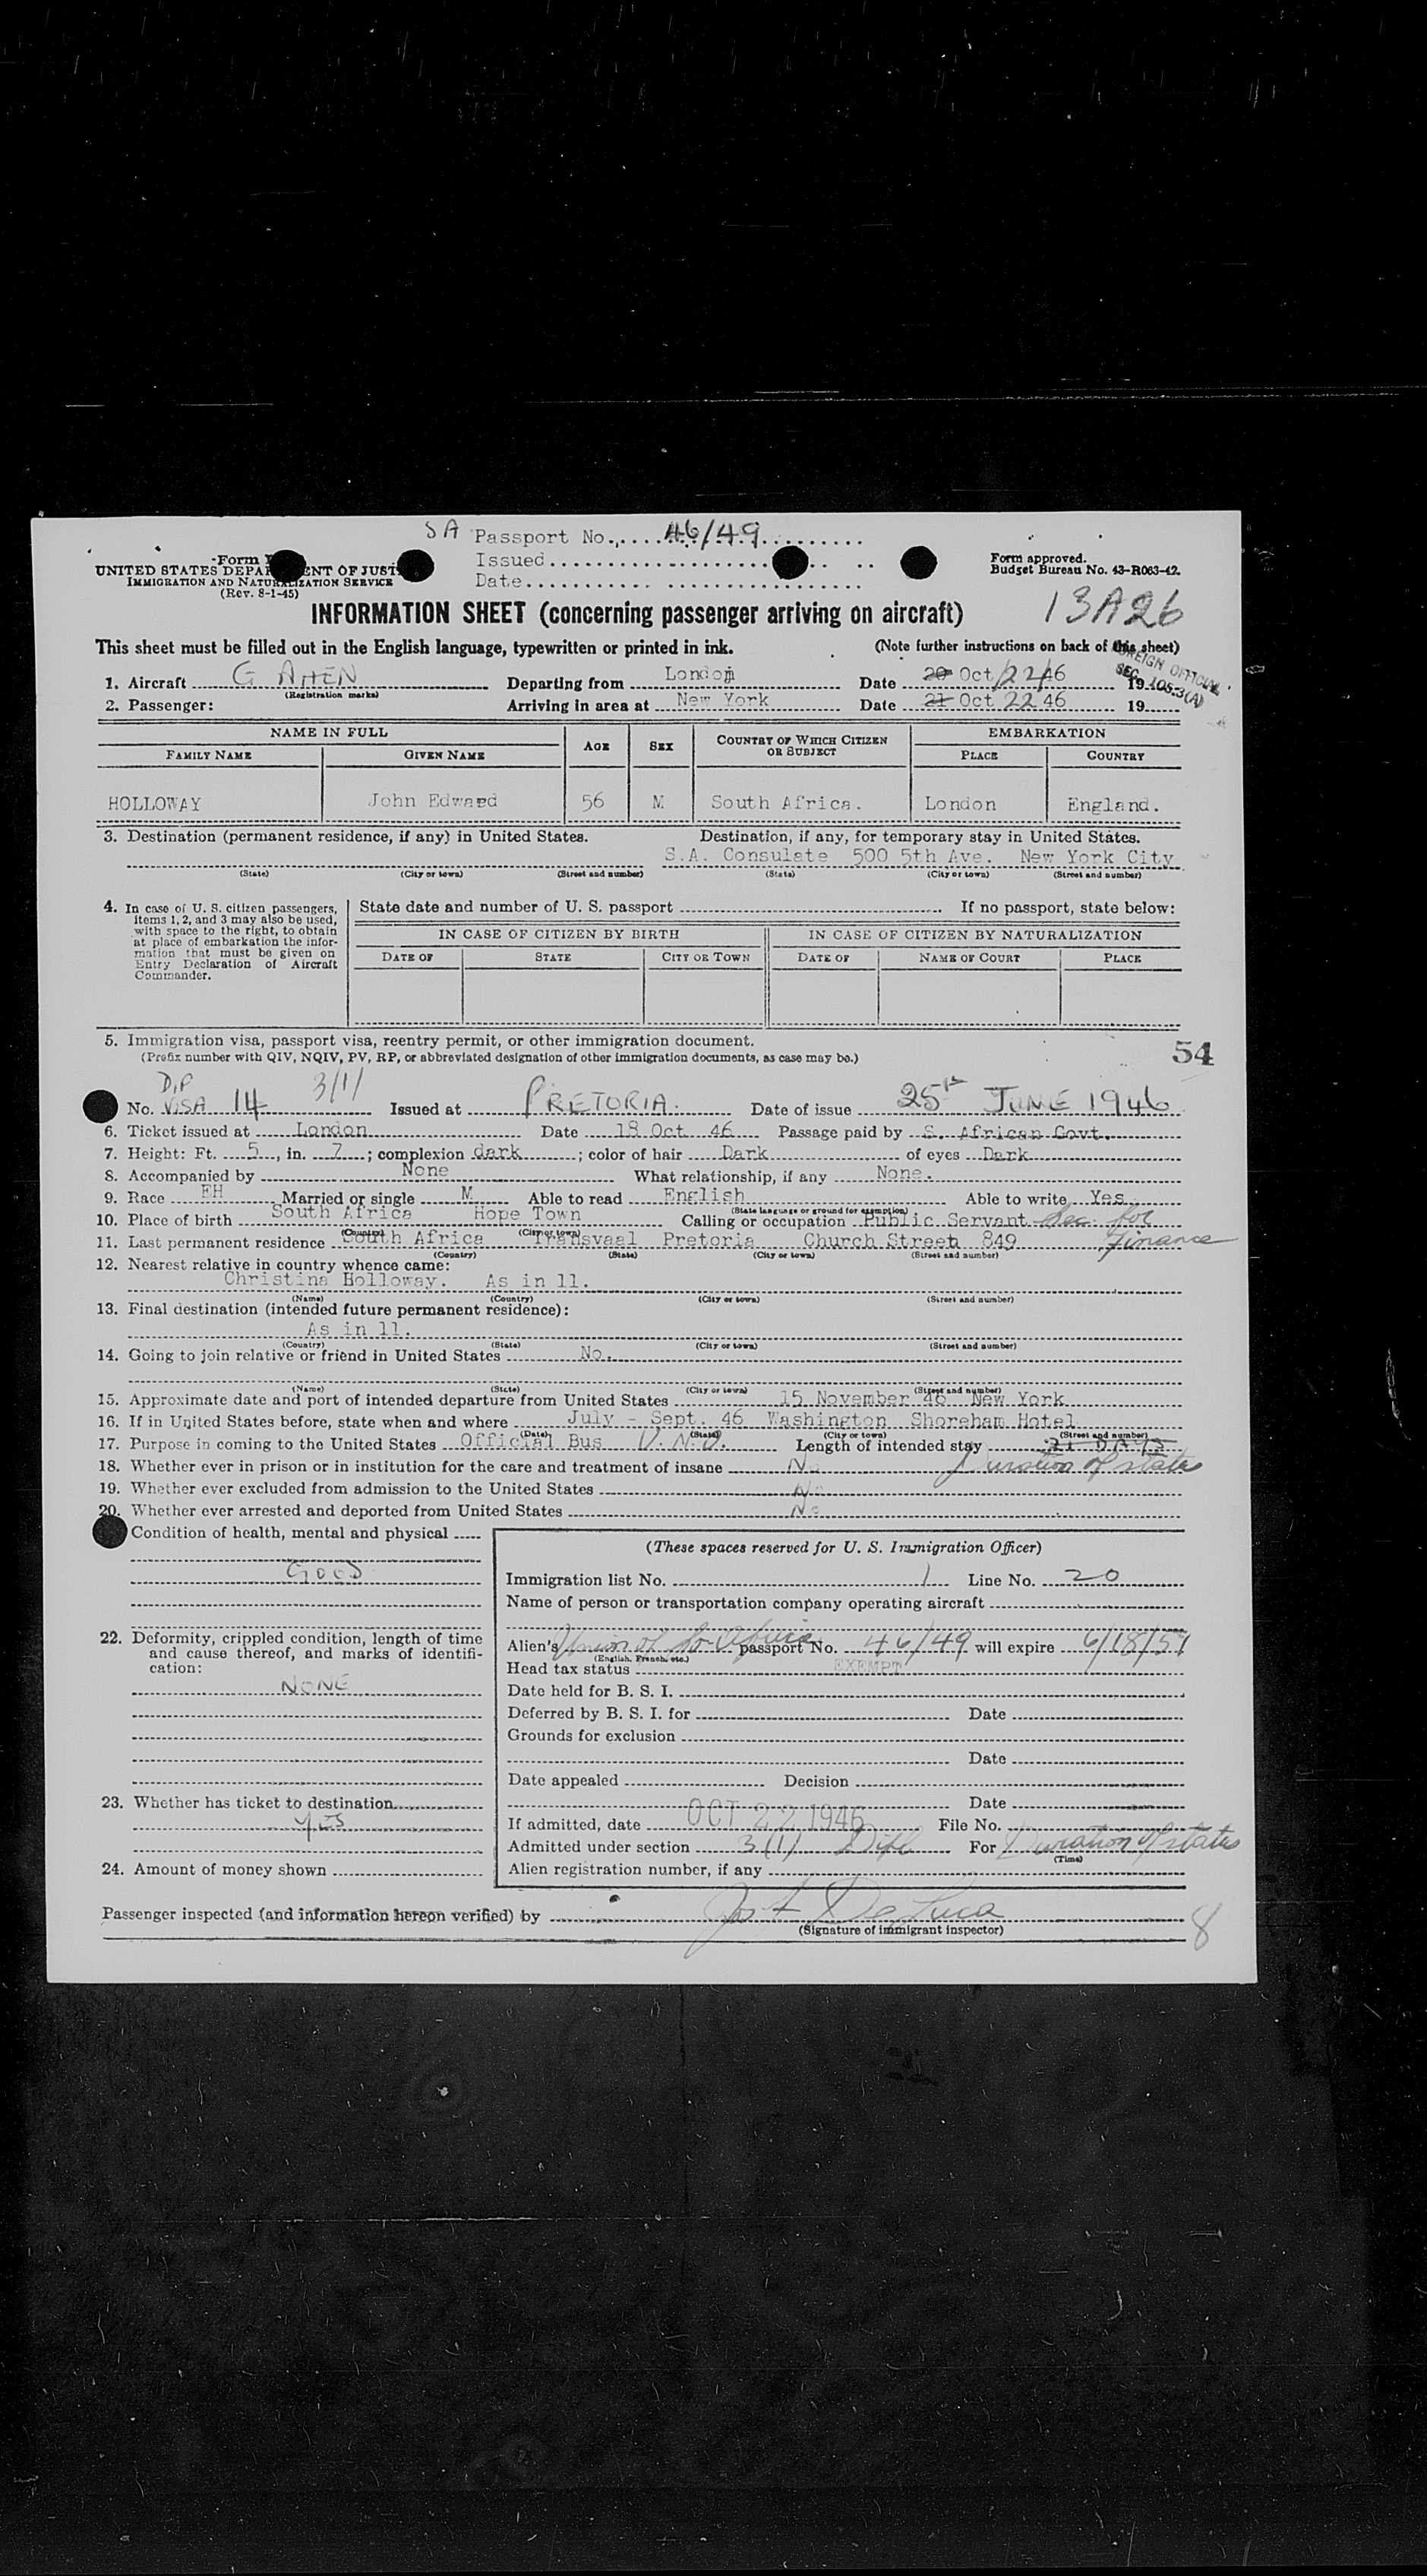 SA Passport No. 46/49
Issued
Date
Form
UNITED STATES DEPARTMENT OF JUSTICE
IMMIGRATION AND NATURALIZATION SERVICE
(Rev. 8-1-45)
Form approved.
Budget Bureau No. 43-R063-42.
INFORMATION SHEET (concerning passenger arriving on aircraft)
13A26
This sheet must be filled out in the English language, typewritten or printed in ink. (Note further instructions on back of this sheet)
FOREIGN OFFICIAL
SEC. 105.3(A)
1. Aircraft G AHEN Departing from London Date 20 Oct/22/46 19
(Registration marks)
2. Passenger: Arriving in area at New York Date 21 Oct 22 46 19
NAME IN FULL AGE SEX COUNTRY OF WHICH CITIZEN OR SUBJECT EMBARKATION
FAMILY NAME GIVEN NAME PLACE COUNTRY
HOLLOWAY John Edward 56 M South Africa. London England.
3. Destination (permanent residence, if any) in United States. Destination, if any, for temporary stay in United States.
S.A. Consulate 500 5th Ave. New York City
(State) (City or town) (Street and number) (State) (City or town) (Street and number)
4. In case of U. S. citizen passengers, items 1, 2, and 3 may also be used, with space to the right, to obtain at place of embarkation the information that must be given on Entry Declaration of Aircraft Commander.
State date and number of U. S. passport If no passport, state below:
IN CASE OF CITIZEN BY BIRTH IN CASE OF CITIZEN BY NATURALIZATION
DATE OF STATE CITY OR TOWN DATE OF NAME OF COURT PLACE
5. Immigration visa, passport visa, reentry permit, or other immigration document.
(Prefix number with QIV, NQIV, PV, RP, or abbreviated designation of other immigration documents, as case may be.)
54
DIP 3/1/
No. VISA 14 Issued at PRETORIA. Date of issue 25th JUNE 1946
6. Ticket issued at London Date 18 Oct 46 Passage paid by S. African Govt.
7. Height: Ft. 5, in. 7; complexion dark; color of hair Dark of eyes Dark
8. Accompanied by None What relationship, if any None.
9. Race EH Married or single M Able to read English Able to write Yes
(State language or ground for exemption)
10. Place of birth South Africa Hope Town Calling or occupation Public Servant Sec. for Finance
(Country) (City or town)
11. Last permanent residence South Africa Transvaal Pretoria Church Street 849
(Country) (State) (City or town) (Street and number)
12. Nearest relative in country whence came:
Christina Holloway. As in 11.
(Name) (Country) (City or town) (Street and number)
13. Final destination (intended future permanent residence):
As in 11.
(Country) (State) (City or town) (Street and number)
14. Going to join relative or friend in United States No.
(Name) (State) (City or town) (Street and number)
15. Approximate date and port of intended departure from United States 15 November 46 New York
16. If in United States before, state when and where July - Sept. 46 Washington Shoreham Hotel
(Date) (State) (City or town) (Street and number)
17. Purpose in coming to the United States Official Bus U.N.O. Length of intended stay 21 DAYS
Duration of status
18. Whether ever in prison or in institution for the care and treatment of insane No
19. Whether ever excluded from admission to the United States No
20. Whether ever arrested and deported from United States No
Condition of health, mental and physical
GOOD
22. Deformity, crippled condition, length of time and cause thereof, and marks of identification:
NONE
23. Whether has ticket to destination
YES
24. Amount of money shown
(These spaces reserved for U. S. Immigration Officer)
Immigration list No. 1 Line No. 20
Name of person or transportation company operating aircraft
Alien's Union of So Africa passport No. 46/49 will expire 6/18/51
(English, French, etc.)
Head tax status EXEMPT
Date held for B. S. I.
Deferred by B. S. I. for Date
Grounds for exclusion
Date
Date appealed Decision
Date
If admitted, date OCT 22 1946 File No.
Admitted under section 3(1) Dipl For Duration of status
(Time)
Alien registration number, if any
Passenger inspected (and information hereon verified) by
(Signature of immigrant inspector)
8